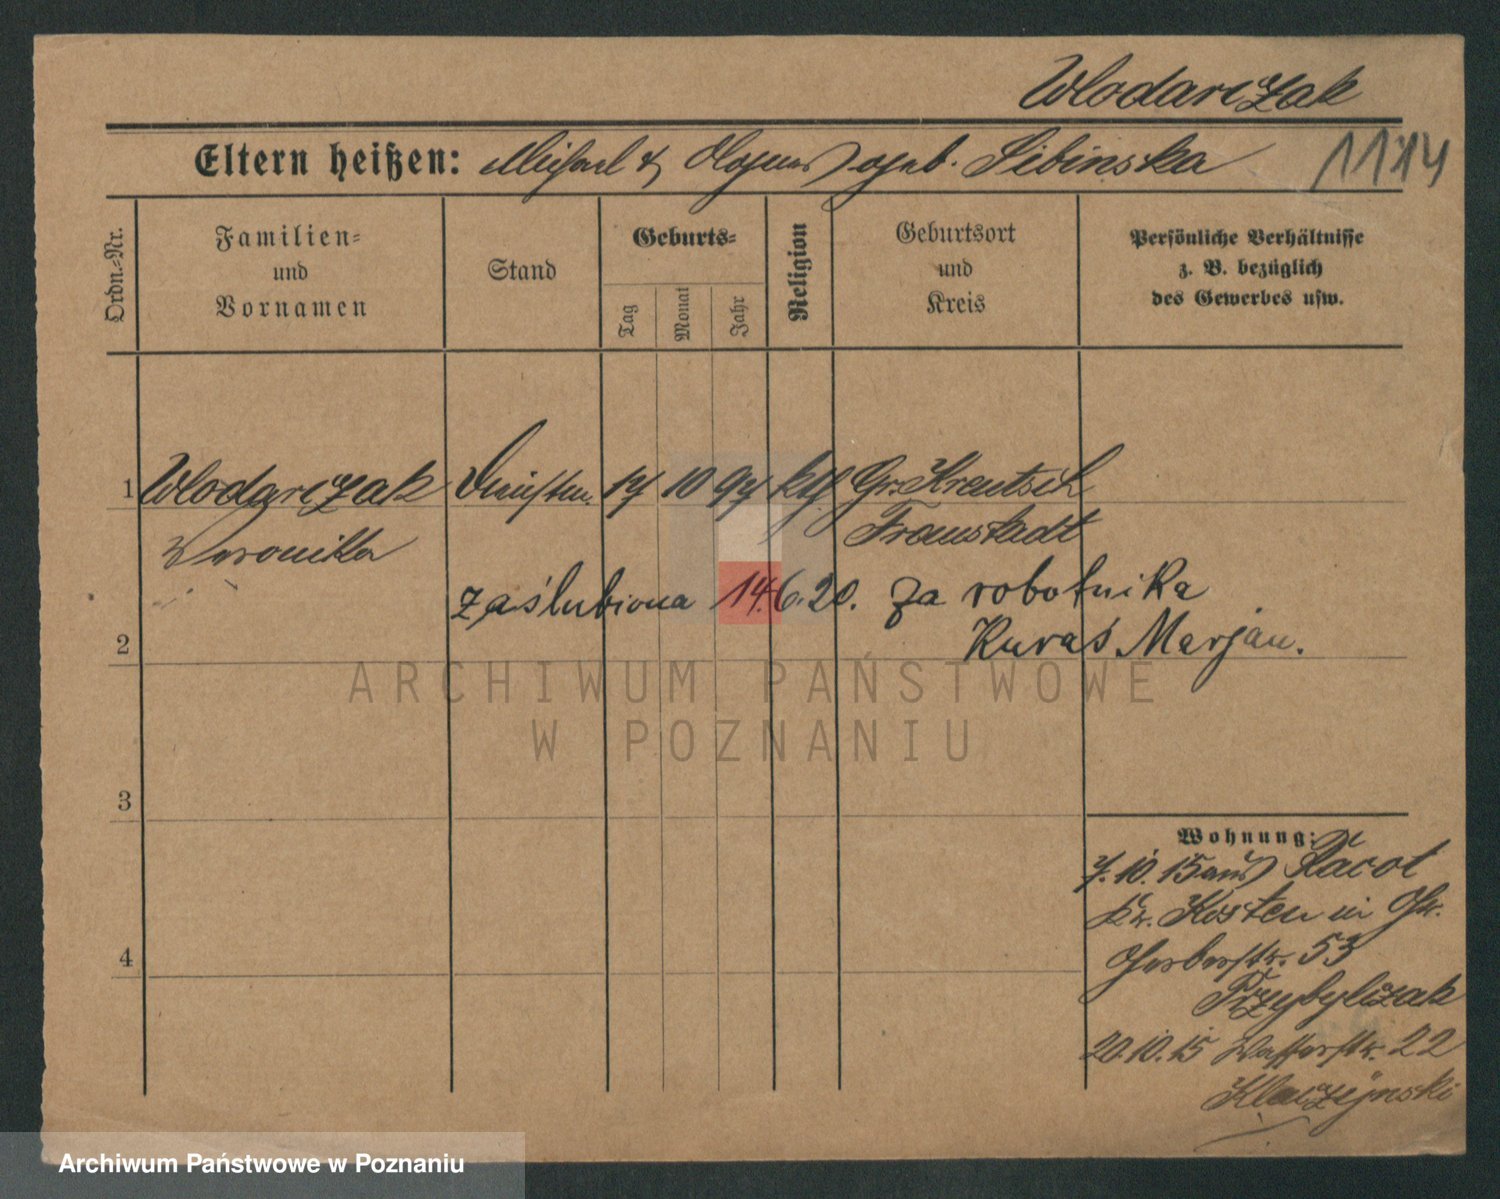 Wlodarczak
Eltern heißen: Michael & geb. Sibinska
1174
Ordn.-Nr.
Familien- und Vornamen
Stand
Geburts-
Tag
Monat
Jahr
Religion
Geburtsort und Kreis
Persönliche Verhältnisse
z. B. bezüglich
des Gewerbes usw.
1 Wlodarczak 17 10 97 kth Gr. Kreutsch
Weronika Fraustadt
zaślubiona 14.6.20. za robotnika
2 Kuraś Marjan.
ARCHIWUM PAŃSTWOWE
W POZNANIU
3
Wohnung:
7.10.15 aus Racot
Kr. Kosten in
4 Gerberstr. 53
Przybylczak
20.10.15 Wasserstr. 22
Klaczynski
Archiwum Państwowe w Poznaniu